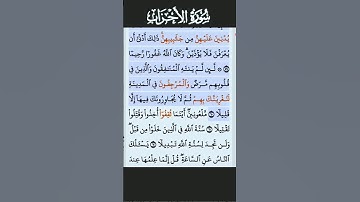 سُورَةُ الأَحْزَابِ
يُدْنِينَ عَلَيْهِنَّ مِن جَلَٰبِيبِهِنَّ ذَٰلِكَ أَدْنَىٰٓ أَن
يُعْرَفْنَ فَلَا يُؤْذَيْنَ وَكَانَ ٱللَّهُ غَفُورًا رَّحِيمًا
۝ لَّئِن لَّمْ يَنتَهِ ٱلْمُنَٰفِقُونَ وَٱلَّذِينَ فِي
قُلُوبِهِم مَّرَضٌ وَٱلْمُرْجِفُونَ فِي ٱلْمَدِينَةِ
لَنُغْرِيَنَّكَ بِهِمْ ثُمَّ لَا يُجَاوِرُونَكَ فِيهَآ إِلَّا
قَلِيلًا ۝ مَّلْعُونِينَ أَيْنَمَا ثُقِفُوٓا۟ أُخِذُوا۟ وَقُتِّلُوا۟
تَقْتِيلًا ۝ سُنَّةَ ٱللَّهِ فِي ٱلَّذِينَ خَلَوْا۟ مِن قَبْلُ
وَلَن تَجِدَ لِسُنَّةِ ٱللَّهِ تَبْدِيلًا ۝ يَسْـَٔلُكَ
ٱلنَّاسُ عَنِ ٱلسَّاعَةِ قُلْ إِنَّمَا عِلْمُهَا عِندَ